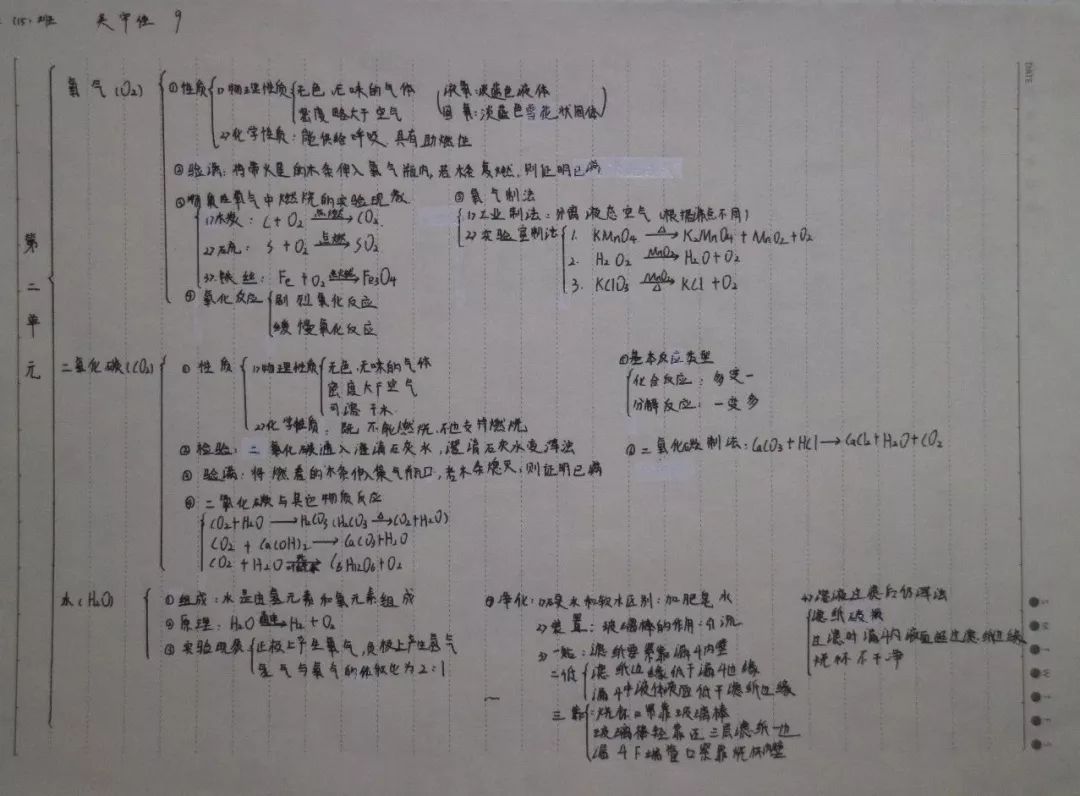 (15)班 9
DATE
第二单元
氧气(O₂)
①性质
1)物理性质
无色.无味的气体
密度略大于空气
(液氧:淡蓝色液体
固氧:淡蓝色雪花状固体)
2)化学性质:能供给呼吸.具有助燃性
②验满:将带火星的木条伸入氧气瓶内,若木条复燃,则证明已满
③物质在氧气中燃烧的实验现象
1)木炭: C+O₂ 点燃→ CO₂
2)石硫: S+O₂ 点燃→ SO₂
3).铁丝: Fe+O₂ 点燃→ Fe₃O₄
④氧化反应
剧烈氧化反应
缓慢氧化反应
⑤氧气制法
1)工业制法:分离液态空气(根据沸点不同)
2)实验室制法
1. KMnO₄ △→ K₂MnO₄+MnO₂+O₂
2. H₂O₂ MnO₂→ H₂O+O₂
3. KClO₃ MnO₂△→ KCl+O₂
二氧化碳(CO₂)
①性质
1)物理性质
无色.无味的气体
密度大于空气
可溶于水
2)化学性质:既不能燃烧,也不支持燃烧
②检验:二氧化碳通入澄清石灰水,澄清石灰水变浑浊
③验满:将燃着的木条伸入集气瓶口,若木条熄灭,则证明已满
④二氧化碳与其它物质反应
CO₂+H₂O→H₂CO₃(H₂CO₃ △→ CO₂+H₂O)
CO₂+Ca(OH)₂→CaCO₃+H₂O
CO₂+H₂O → C₆H₁₂O₆+O₂
基本反应类型
化合反应:多变一
分解反应:一变多
二氧化碳制法:CaCO₃+HCl→CaCl₂+H₂O+CO₂
水(H₂O)
①组成:水是由氢元素和氧元素组成
②原理:H₂O 通电→ H₂+O₂
③实验现象
正极上产生氧气,负极上产生氢气
氢气与氧气的体积比为2:1
④净化:1)硬水和软水区别:加肥皂水
2)装置:玻璃棒的作用:引流
3)一贴:滤纸要紧靠漏斗内壁
二低
滤纸边缘低于漏斗边缘
漏斗中液体液面低于滤纸边缘
三靠:
烧杯口紧靠玻璃棒
玻璃棒轻靠在三层滤纸一边
漏斗下端管口紧靠烧杯内壁
4)溶液过滤后仍浑浊
滤纸破损
过滤时漏斗内液面超过滤纸边缘
烧杯不干净